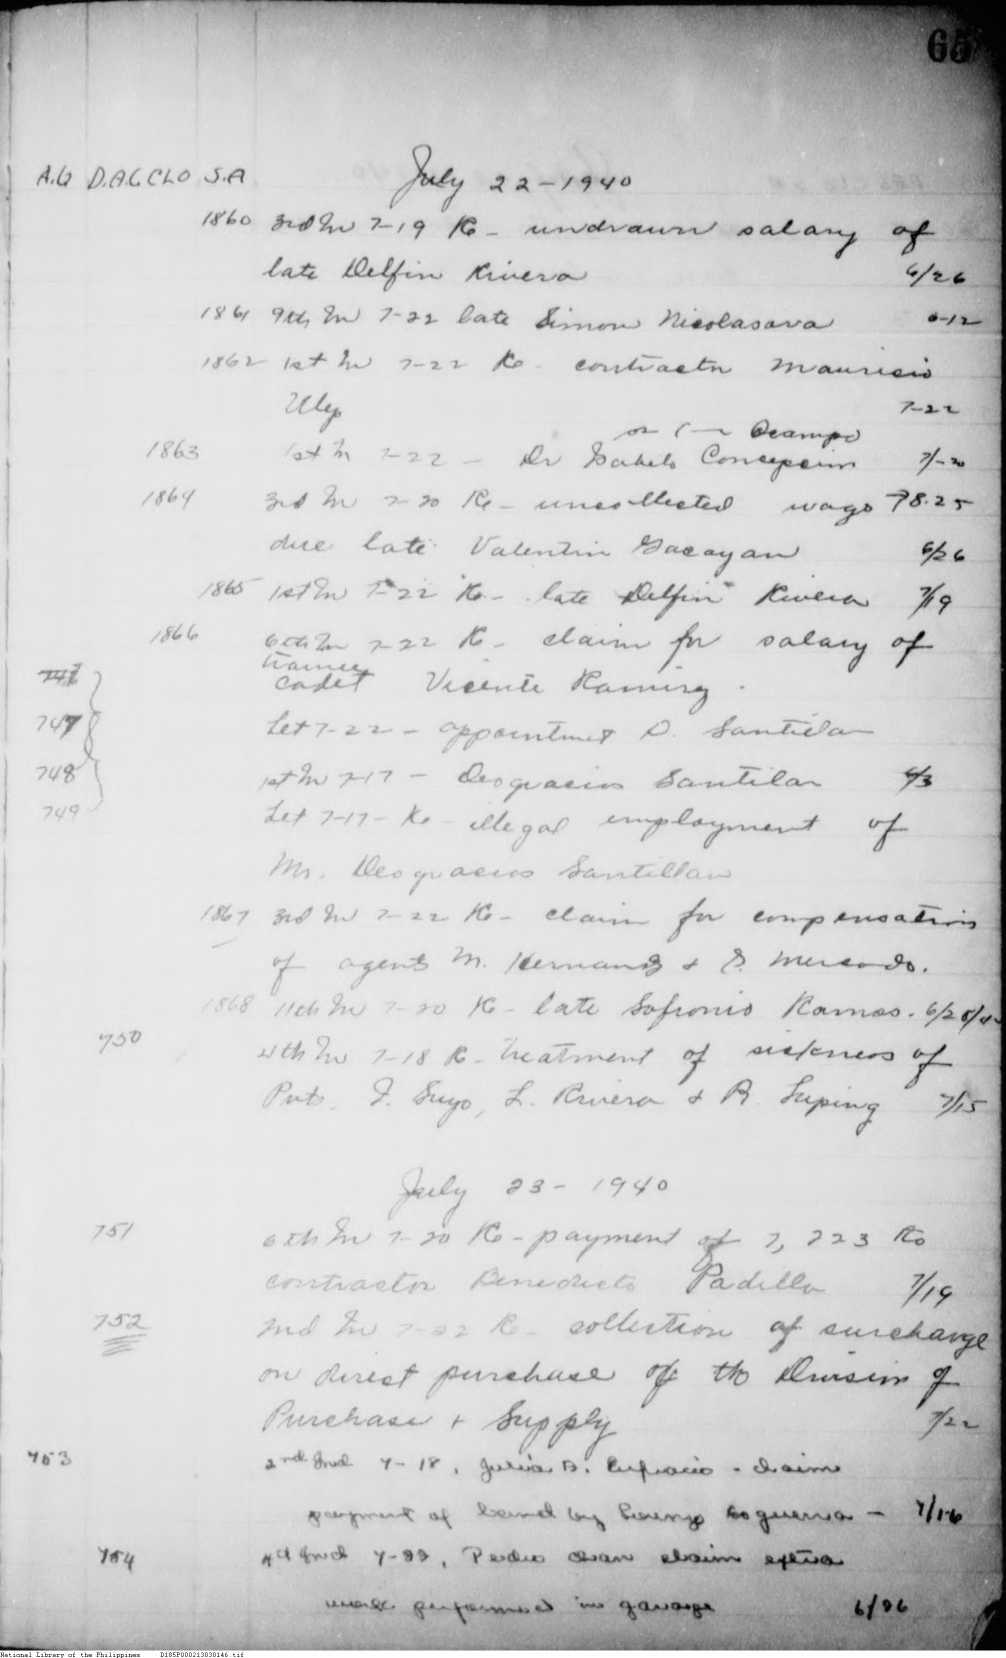 65
A.G D.A.G CLO S.A July 22-1940
1860 3rd In 7-19 Re- undrawn salary of
late Delfin Rivera 6/26
1861 9th In 7-22 late Simon Nicolasava 6-12
1862 1st In 7-22 Re- contractor Mauricio
Ulep 7-22
or Ocampo
1863 1st In 7-22 - Dr Isabelo Concepcion 7/-20
1864 3rd In 7-20 Re- uncollected wage ₱8.25
due late Valentin Gacayan 6/26
1865 1st In 7-22 Re- late Delfin Rivera 7/19
1866 6th In 7-22 Re- claim for salary of
trainee
cadet Vicente Ramirez.
747 Let 7-22 - appointment D. Santilan
748 1st In 7-17 - Deogracias Santilan 6/3
749 Let 7-17- Re- illegal employment of
Mr. Deogracias Santillan
1867 3rd In 7-22 Re- claim for compensation
of agents M. Hernandz & S. Mercado.
1868 11th In 7-20 Re- late Sofronio Ramos. 6/28/40
750 4th In 7-18 Re- treatment of sickness of
Pvts. F. Suyo, L. Rivera & R. Suping 7/15
July 23-1940
751 6th In 7-20 Re- payment of 7,223 to
contractor Benedicto Padilla 7/19
752 2nd In 7-22 Re- collection of surcharge
on direct purchase of the Division of
Purchase & Supply 7/22
753 2nd Ind 7-18, Julia B. Eufracio - claim
payment of land by Lorenzo Boguerra - 7/16
754 4th Ind 7-22, Pedro Chan claim extra
work performed in garage 6/26
National Library of the Philippines D185P000213030146.tif